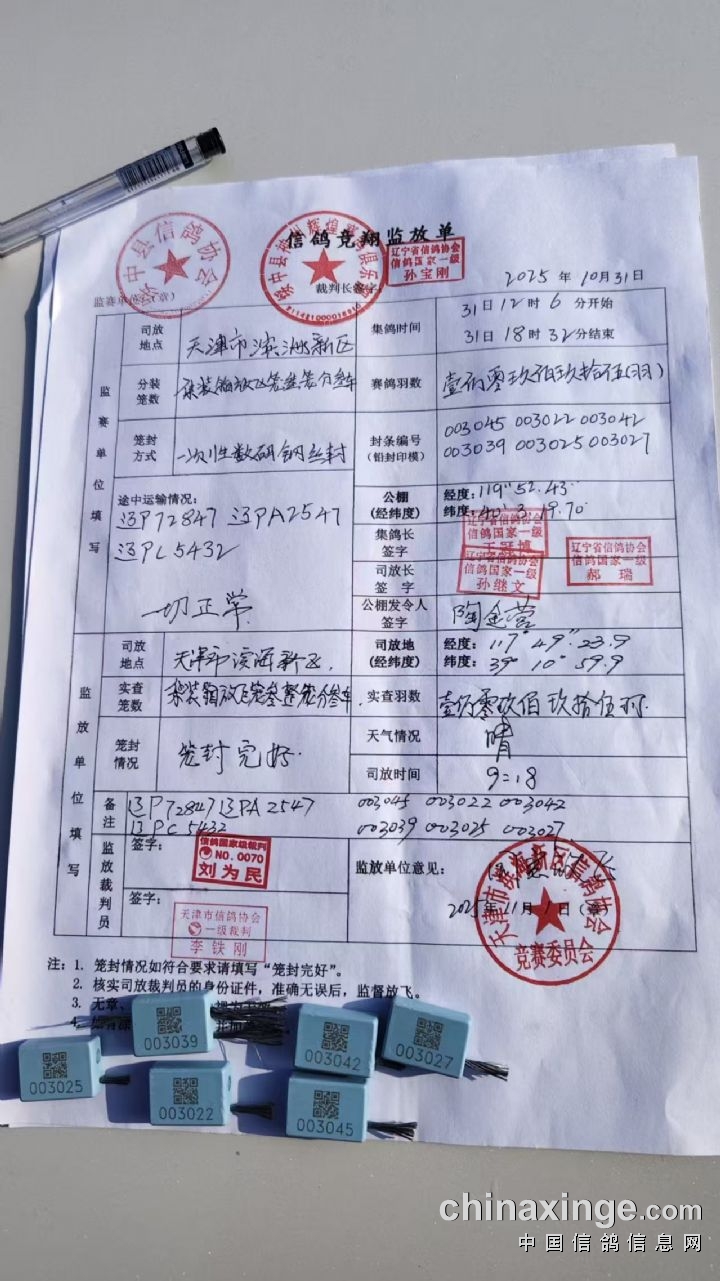 信鸽竞翔监放单
绥中县信鸽协会
辽宁省信鸽协会
信鸽国家一级
孙宝刚
2025年10月31日
监赛单位(章)
裁判长签字
监赛单位填写
司放地点
天津市滨海新区
集鸽时间
31日12时6分开始
31日18时32分结束
分装笼数
赛鸽羽数
壹仟零玖佰玖拾伍(羽)
笼封方式
一次性数码钢丝封
封条编号
(铅封印模)
003045 003022 003042
003039 003025 003027
途中运输情况:
辽P72847 辽PA2547
辽PC5432
一切正常
公棚
(经纬度)
经度:119°52.43
纬度:40°3.19.70
集鸽长
签字
辽宁省信鸽协会
信鸽国家一级
司放长
签字
信鸽国家一级
孙继文
辽宁省信鸽协会
信鸽国家一级
郝瑞
公棚发令人
签字
陶金莹
监放单位填写
司放地点
天津市滨海新区
司放地
(经纬度)
经度:117°49".23.9
纬度:39°10°59.9
实查笼数
实查羽数
壹仟零玖佰玖拾伍羽
笼封情况
笼封完好
天气情况
晴
司放时间
9:18
备注
辽P72847 辽PA2547
辽PC5432
003045 003022 003042
003039 003025 003027
监放裁判员
签字:
信鸽国家级裁判
NO.0070
刘为民
签字:
天津市信鸽协会
一级裁判
李铁刚
监放单位意见:
2025年11月1日(章)
天津市滨海新区信鸽协会
竞赛委员会
注:1. 笼封情况如符合要求请填写“笼封完好”。
2. 核实司放裁判员的身份证件,准确无误后,监督放飞。
3. 无章、
4.
003039
003042
003027
003025
003022
003045
chinaxinge.com
中国信鸽信息网